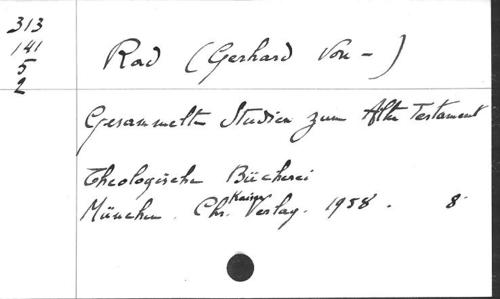 313
141
5
2
Rad (Gerhard von -)
Gesammelte Studien zum Alten Testament
Theologische Bücherei
München. Chr. Kaiser Verlag. 1958. 8°